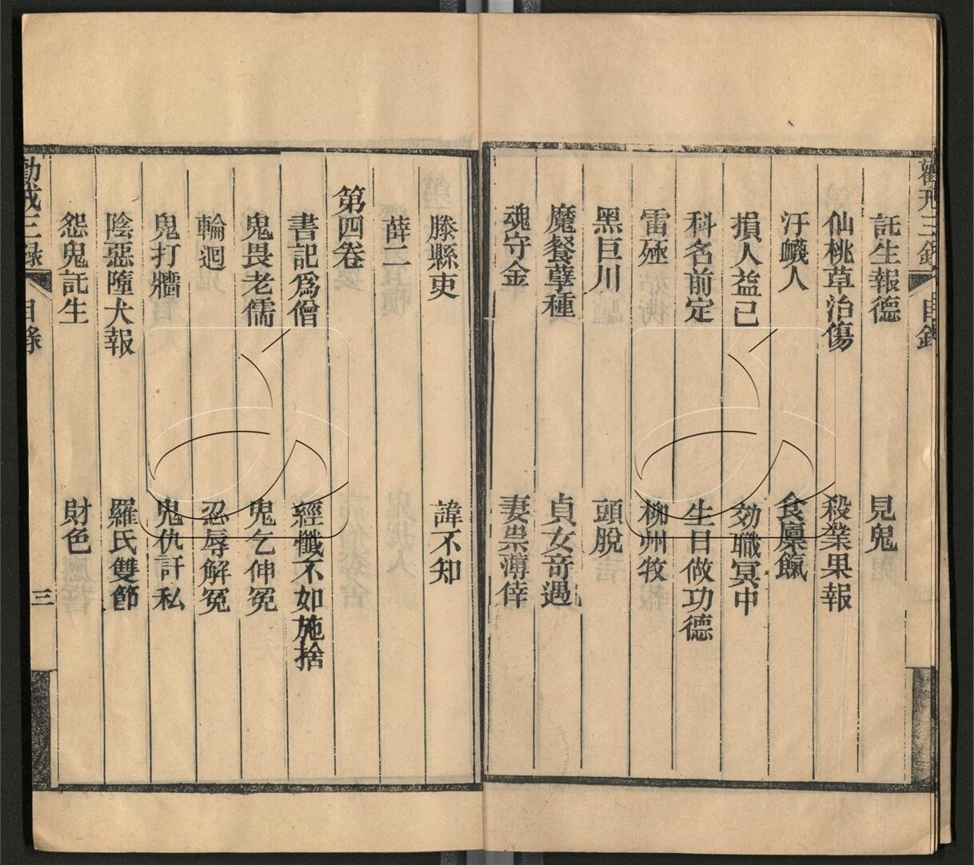 託生報德　見鬼
仙桃草治傷　殺業果報
汙衊人　食廩餼
損人益己　効職冥中
科名前定　生日做功德
雷殛　柳州牧
黑巨川　頭脫
魔餐孽種　貞女奇遇
魂守金　妻祟薄倖
滕縣吏　諱不知
薛二
第四卷
書記爲僧　經懺不如施捨
鬼畏老儒　鬼乞伸冤
輪迴　忍辱解冤
鬼打牆　鬼仇訐私
陰惡墮犬報　羅氏雙節
怨鬼託生　財色
勸戒三錄　目錄　三